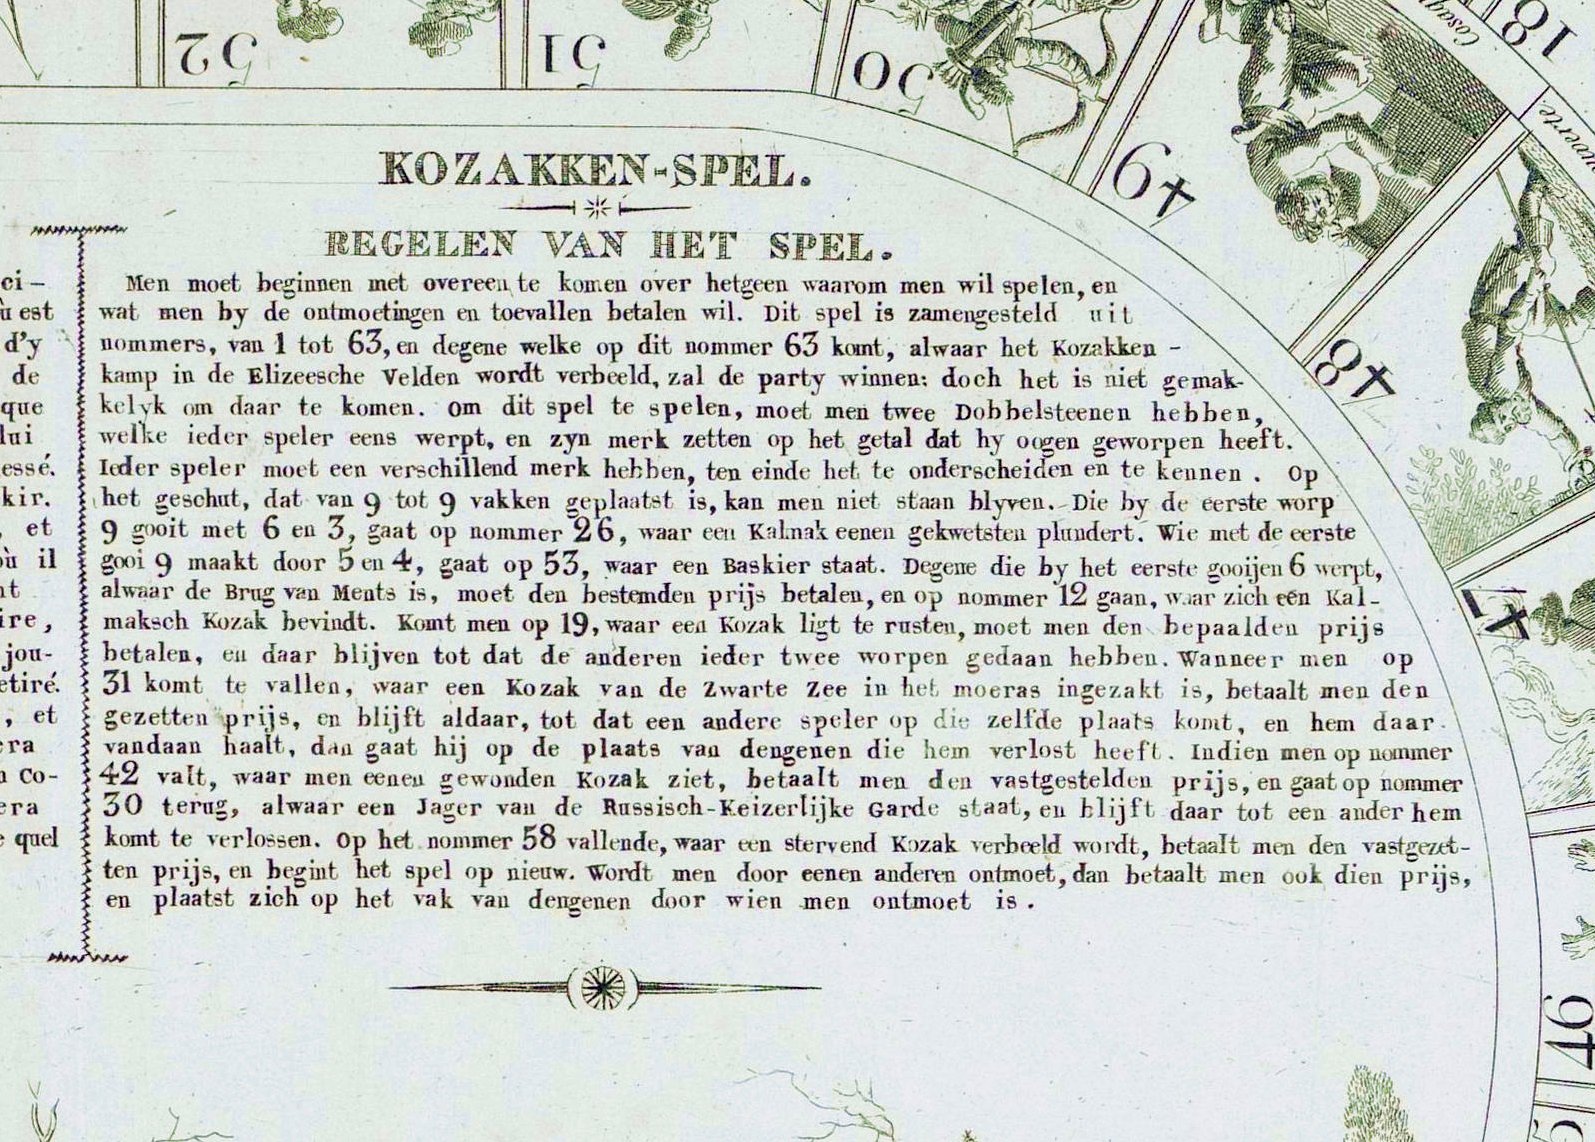 52
51
50
49
48
47
46
18
Cosaq
KOZAKKEN-SPEL.
REGELEN VAN HET SPEL.
Men moet beginnen met overeen te komen over hetgeen waarom men wil spelen, en
wat men by de ontmoetingen en toevallen betalen wil. Dit spel is zamengesteld uit
nommers, van 1 tot 63, en degene welke op dit nommer 63 komt, alwaar het Kozakken-
kamp in de Elizeesche Velden wordt verbeeld, zal de party winnen: doch het is niet gemak-
kelyk om daar te komen. Om dit spel te spelen, moet men twee Dobbelsteenen hebben,
welke ieder speler eens werpt, en zyn merk zetten op het getal dat hy oogen geworpen heeft.
Ieder speler moet een verschillend merk hebben, ten einde het te onderscheiden en te kennen. Op
het geschut, dat van 9 tot 9 vakken geplaatst is, kan men niet staan blyven. Die by de eerste worp
9 gooit met 6 en 3, gaat op nommer 26, waar een Kalmak eenen gekwetsten plundert. Wie met de eerste
gooi 9 maakt door 5 en 4, gaat op 53, waar een Baskier staat. Degene die by het eerste gooijen 6 werpt,
alwaar de Brug van Ments is, moet den bestemden prijs betalen, en op nommer 12 gaan, waar zich een Kal-
maksch Kozak bevindt. Komt men op 19, waar een Kozak ligt te rusten, moet men den bepaalden prijs
betalen, en daar blijven tot dat de anderen ieder twee worpen gedaan hebben. Wanneer men op
31 komt te vallen, waar een Kozak van de Zwarte Zee in het moeras ingezakt is, betaalt men den
gezetten prijs, en blijft aldaar, tot dat een andere speler op die zelfde plaats komt, en hem daar.
vandaan haalt, dan gaat hij op de plaats van dengenen die hem verlost heeft. Indien men op nommer
42 valt, waar men eenen gewonden Kozak ziet, betaalt men den vastgestelden prijs, en gaat op nommer
30 terug, alwaar een Jager van de Russisch-Keizerlijke Garde staat, en blijft daar tot een ander hem
komt te verlossen. Op het nommer 58 vallende, waar een stervend Kozak verbeeld wordt, betaalt men den vastgezet-
ten prijs, en begint het spel op nieuw. Wordt men door eenen anderen ontmoet, dan betaalt men ook dien prijs,
en plaatst zich op het vak van dengenen door wien men ontmoet is.
ci-
est
d'y
de
que
lui
essé.
kir.
, et
où il
nt
ire,
jou-
etiré.
, et
era
n Co-
era
quel